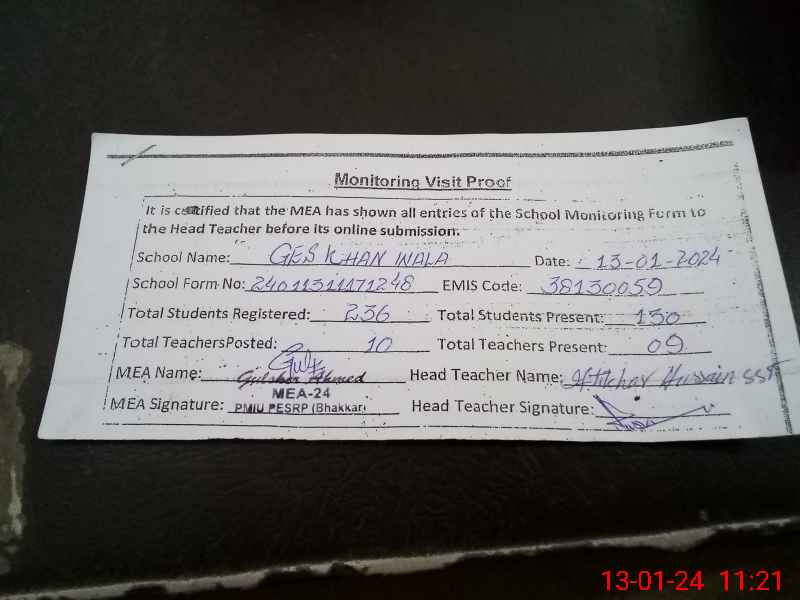 Monitoring Visit Proof
It is certified that the MEA has shown all entries of the School Monitoring Form to
the Head Teacher before its online submission.
School Name: GES KHAN WALA Date: 13-01-2024
School Form No: 24011311171248 EMIS Code: 38130059
Total Students Registered: 236 Total Students Present: 150
Total TeachersPosted: 10 Total Teachers Present: 09
MEA Name: Gulsher Ahmed Head Teacher Name: Iftikhar Hussain SST
MEA-24
MEA Signature: PMIU PESRP (Bhakkar) Head Teacher Signature:
13-01-24 11:21